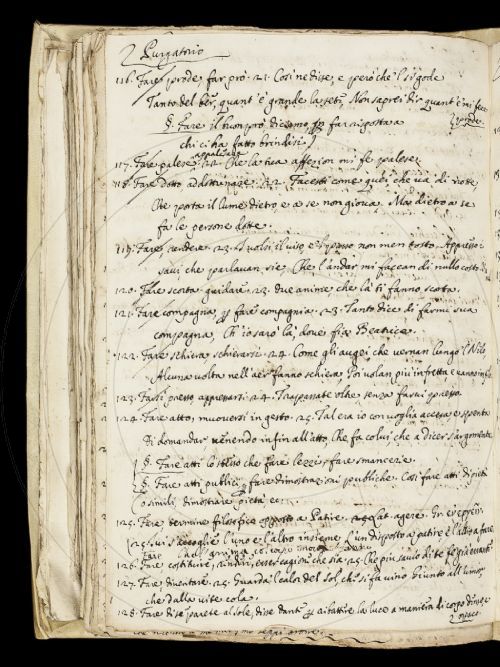 2 Purgatorio
116. Fare prode far prò. 21. Così ne disse, e però ch'el si gode
Tanto del ber, quant' è grande la sete, Non saprei dir quant' è mi fece
prode.
§. Fare il buon prò diciamo, far risposta a
chi ci ha fatto brindisi
appalesare
117. Fare palese. 22. Che la tua affezion mi fe palese
118. Fare dotto addottrinare. 22. Facesti come quei, che va di notte,
Che porta il lume dietro, e a se non giova. Ma dietro a se
fa le persone dotte.
119. Fare, rendere. 23. Io volsi il viso e 'l passo non men tosto, Appresso a'
savi che parlavan sie, Che l'andar mi facean di nullo costo.
120. Fare scorta guidare. 23. due anime, che là ti fanno scorta.
121. Fare compagna, far compagnia. 23. Tanto dice di farmi sua
compagna, Ch' io sarò là, dove fia Beatrice.
122. Fare schiera schierarsi. 24. Come gli augei che vernan lungo 'l Nilo
Alcuna volta nell' aer fanno schiera Poi volan più in fretta e vanno in filo
123. Farsi presso appressarsi. 24. Trapassate oltre senza farvi presso
124. Fare atto, muoversi in gesto. 25. Tal era io con voglia accesa e spenta
Di domandar venendo infin all' atto, Che fa colui che a dicer s'argomenta
§. Fare atti lo stesso che fare lezzi, fare smancerie.
§. Fare atti pubblici, fare dimostrazioni pubbliche. Così fare atti di pietà
o simili, dimostrare pietà ec.
125. Fare, termine filosofico opposto a Patire. Lat. agere.
25. ivi s'accoglie l'uno e l'altro insieme L'un disposto a patire e l'altro a fare
126. Fare costituire, 25. Che più savio di te fe già errante
127. Fare diventare. 25. Guarda 'l calor del sol che si fa vino Giunto all' umor
che dalla vite cola.
128. Fare disse Dante la luce a maniera di corpo